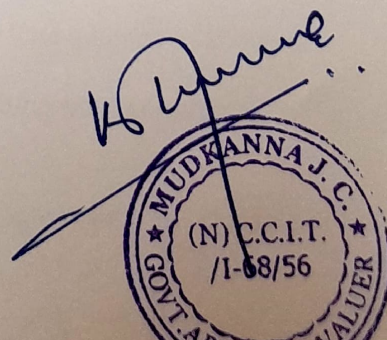 ★ MUDKANNA J. C. ★
(N) C.C.I.T.
/I-68/56
GOVT. VALUER